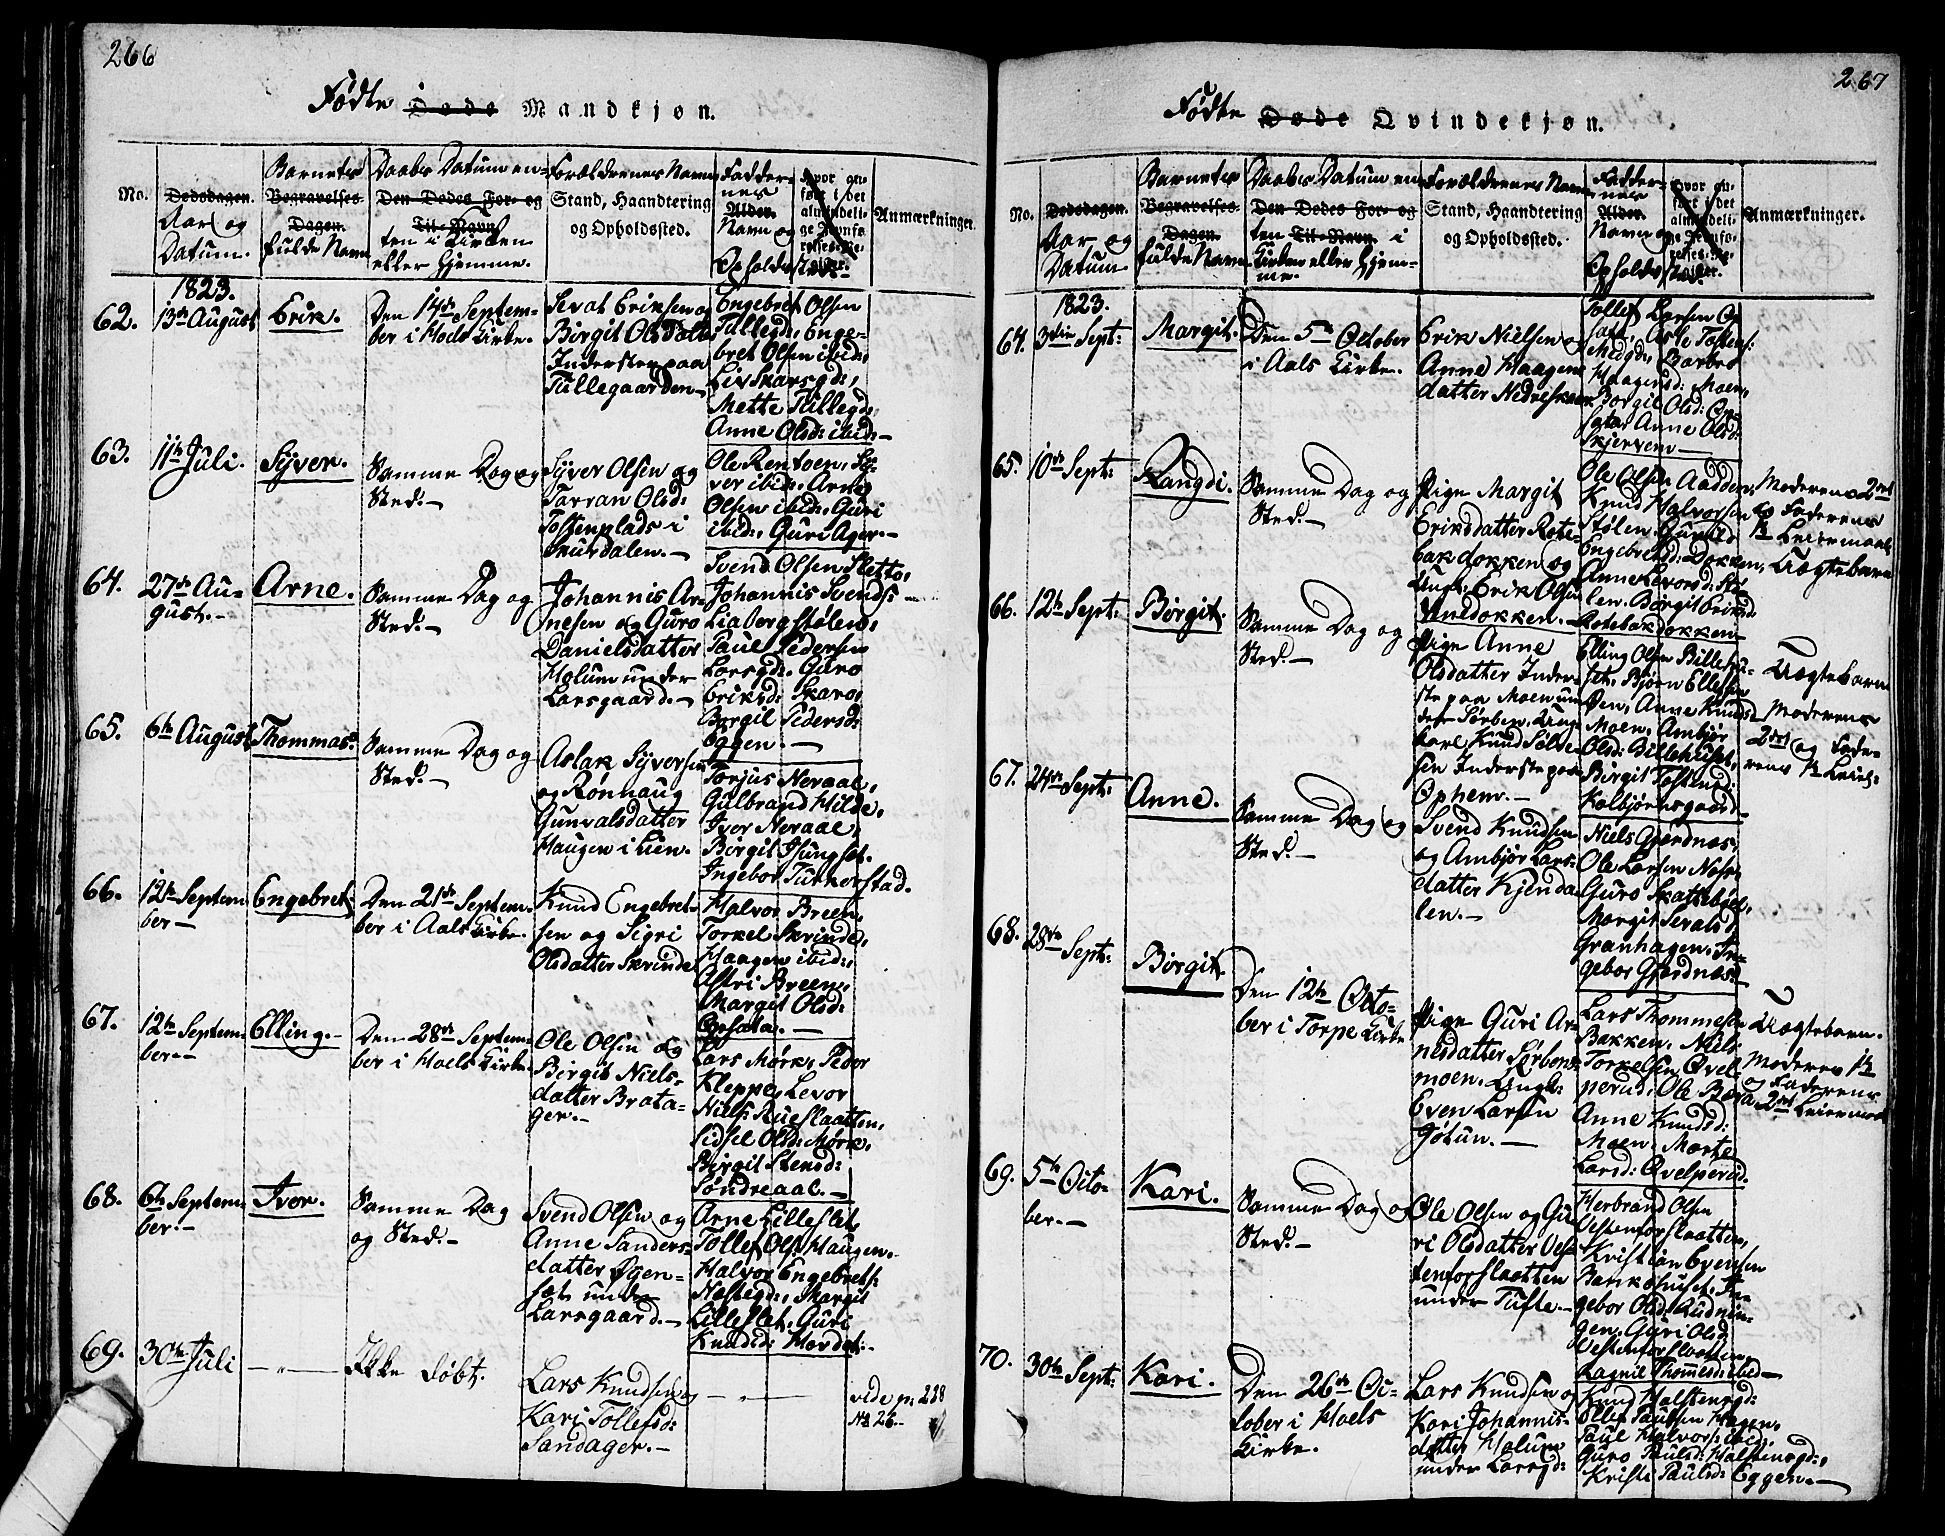 266
Fødte Døde Mandkjøn.
No.
Dødsdagen.
Aar og
Datum.
Barnets
Begravelses
Dagen.
fulde Navn
Daabs Datum en-
Den Dødes For- og
Til-Navn
ten i Kirken
eller Hjemme.
Forældrenes Navn
Stand, Haandtering
og Opholdssted.
Fadder-
nes
Alder.
Navn og
Opholds
Anmærkninger.
1823.
62.
13de August
Erik.
Den 14de Septem-
ber i Hoels Kirke.
Sevat Eriksen og
Birgit Olsdatter
Inderster paa
Tillegaarden
Engebret Olsen
Tillegd:, Enge-
bret Olsen ibid:,
Liv Skarsgd:,
Mette Tillegd:,
Anne Olsd: ibid:
63.
11te Juli.
Syver.
Samme Dag og
Sted.
Syver Olsen og
Tarran Olsd:
Tossenplads i
Skurdalen.
Ole Rentoen, Sy-
ver ibid:, Arne
Olsen ibid:, Guri
ibid:, Guri Ager.
64.
27de Au-
gust.
Arne.
Samme Dag og
Sted.
Johannis Ar-
nesen og Guro
Danielsdatter
Holum under
Larsgaard.
Svend Olsen Sletto,
Johannis Svends:
Liabergstølen,
Paul Pedersen
Larsgd:, Guro
Eriksd: Skaro,
Borgil Pedersd:
Eggen.
65.
6te August
Thommas.
Samme Dag og
Sted.
Aslak Syversen
og Rønnaug
Gunvalsdatter
Haugen i Lien.
Torjus Neraal,
Gulbrand Hilde,
Iver Neraal,
Birgit
Ingebor
66.
12te Septem-
ber
Engebret.
Den 21de Septem-
ber i Aals Kirke.
Knud Engebret-
sen og Sigri
Olsdatter Skrinde
Halvor Breen,
Torkel Skrinde,
Haagen ibid:,
Astri Breen,
Margit Olsd:
Opsata.
67.
12te Septem-
ber
Elling.
Den 28de Septem-
ber i Hoels Kirke.
Ole Olsen og
Birgit Niels-
datter Brata-
ger.
Lars Mørk, Peder
Kleppe, Levor
Niels: Rueslaatten,
Sidsel Olsd: Mørk,
Birgit Stensd:
Søndreaal.
68.
6te Septem-
ber.
Iver.
Samme Dag
og Sted.
Svend Olsen og
Anne Sanders-
datter Øgen-
set under
Larsgaard.
Arne Lilleslet,
Tollef Ols: Haugen,
Halvor Engebrets:
Nestegd:, Margit
Lilleslet, Guri
Knudsd:
69.
30te Juli
Ikke døbt.
Lars Knudsen og
Kari Tollefsd:
Sandager.
vide p: 228
No 26.
267
Fødte Døde Qvindekjøn.
No.
Dødsdagen.
Aar og
Datum
Barnets
Begravelses
Dagen.
fulde Navn
Daabs Datum en-
Den Dødes For- og
ten Til-Navn. i
Kirken eller Hjem-
me.
Forældrenes Navn
Stand, Haandtering
og Opholdssted.
Fadder-
nes
Alder.
Navn og
Opholds
Anmærkninger.
1823.
64.
3die Sept:
Margit.
Den 5te October
i Aals Kirke.
Erik Nielsen og
Anne Haagens
datter Nedreskaar
Tollef Larsen Op
sata, Asle Tostens:
Medgd:, Barbro
Haagensd: Moen,
Borgil Olsd: Op-
sata, Anne Olsd:
Skjerven
65.
10de Sept:
Rangdi.
Samme Dag og
Sted.
Pige Margit
Eriksdatter Rote-
bakdokken og
Ungk: Erik Olsen
Vendokken.
Ole Olsen Aadden,
Knud Halvorsen
Stølen, Gunild
Engebretsd: Dokken,
Anne Levorsd: Stø-
len, Birgit Eriksd:
Rotebakdokken
Moderens 2det
og Faderens
1te Leiermaal
Uægtebarn
66.
12te Sept:
Birgit.
Samme Dag og
Sted.
Pige Anne
Olsdatter Inder-
ste paa Moen un
der Sørben, Ung
karl Knud
sen Inderste paa
Ophem.
Elling Olsen
Bjørn Ellefsen
Øen, Anne Knuds
Moen, Ambjør
Olsd: Billehuset,
Birgit Tostensd:
Kolbjørnsgaard
Uægtebarn
Moderens
2det og Fade-
rens 1te Leier:
67.
24de Sept:
Anne.
Samme Dag og
Sted.
Svend Knudsen
og Ambjør Lars-
datter Kjenda-
len.
Niels Gjerdnæs,
Ole Larsen
Guro Skattebøl,
Margit
Granhagen, In-
gebor Gjerdnæs
68.
28de
Sept:
Birgit.
Den 12te Octo-
ber i Torpe Kirke
Pige Guri Ar-
nesdatter Sørbens
moen. Ungk:
Even Larsen
Gøtun.
Lars Thommesen
Bakken, Niels
Torkelsen Qvel-
perud, Ole
Anne Knudsd:
Moen, Marte
Larsd: Qvelperud
Uægtebarn.
Moderes 1te
og Faderens
2det Leiermaal
69.
5te Octo-
ber.
Kari.
Samme Dag og
Sted.
Ole Olsen og Gu
ri Olsdatter Ves-
tenforslaatten
under Tufte.
Herbrand Olsen
Vestenforslaatten,
Kristian Evensen
Bankehuset, In-
gebor Olsd: Rudnin-
gen, Guri Olsd:
Vestenforslaatten,
Ragnil Thommesd: ibid
70.
30te Sept:
Kari.
Den 26de Oc-
tober i Hoels
Kirke.
Lars Knudsen og
Kari Johannis-
datter Holum
under Larsgd:
Knud Halstensgd:
Ellef Paulsen Hagen,
Paul Halvors: ibid:,
Guro Paulsd: Halstensgd:,
Kristi Paulsd: Eggen.